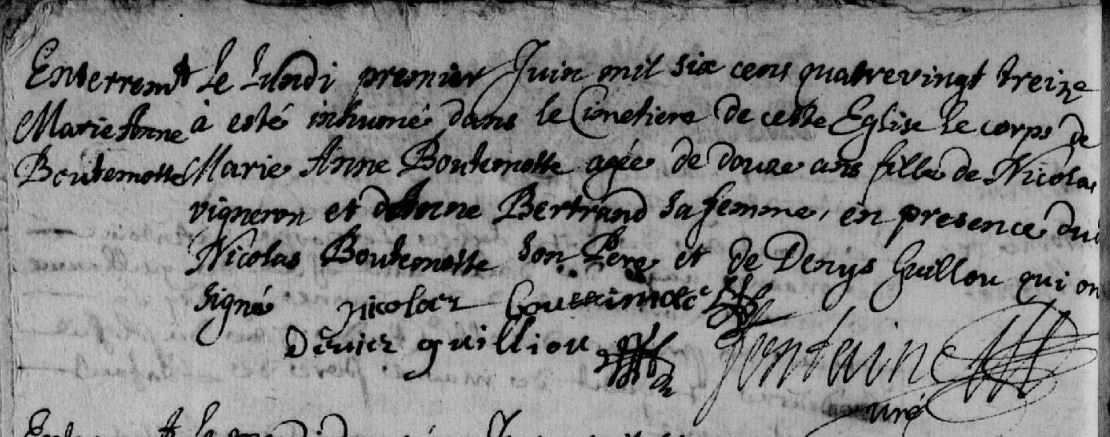 Enterremt Le Lundi premier Juin mil six cens quatrevingt treize
Marie Anne à esté inhumé dans le Cimetiere de cette Eglise Le corps de
Boutemotte Marie Anne Boutemotte agée de douze ans fille de Nicolas
vigneron et d'Anne Bertrand sa femme, en presence dud
Nicolas Boutemotte son Pere et de Denys Guillou qui on
signé nicolaes
Denies guilliou Fontaine
curé